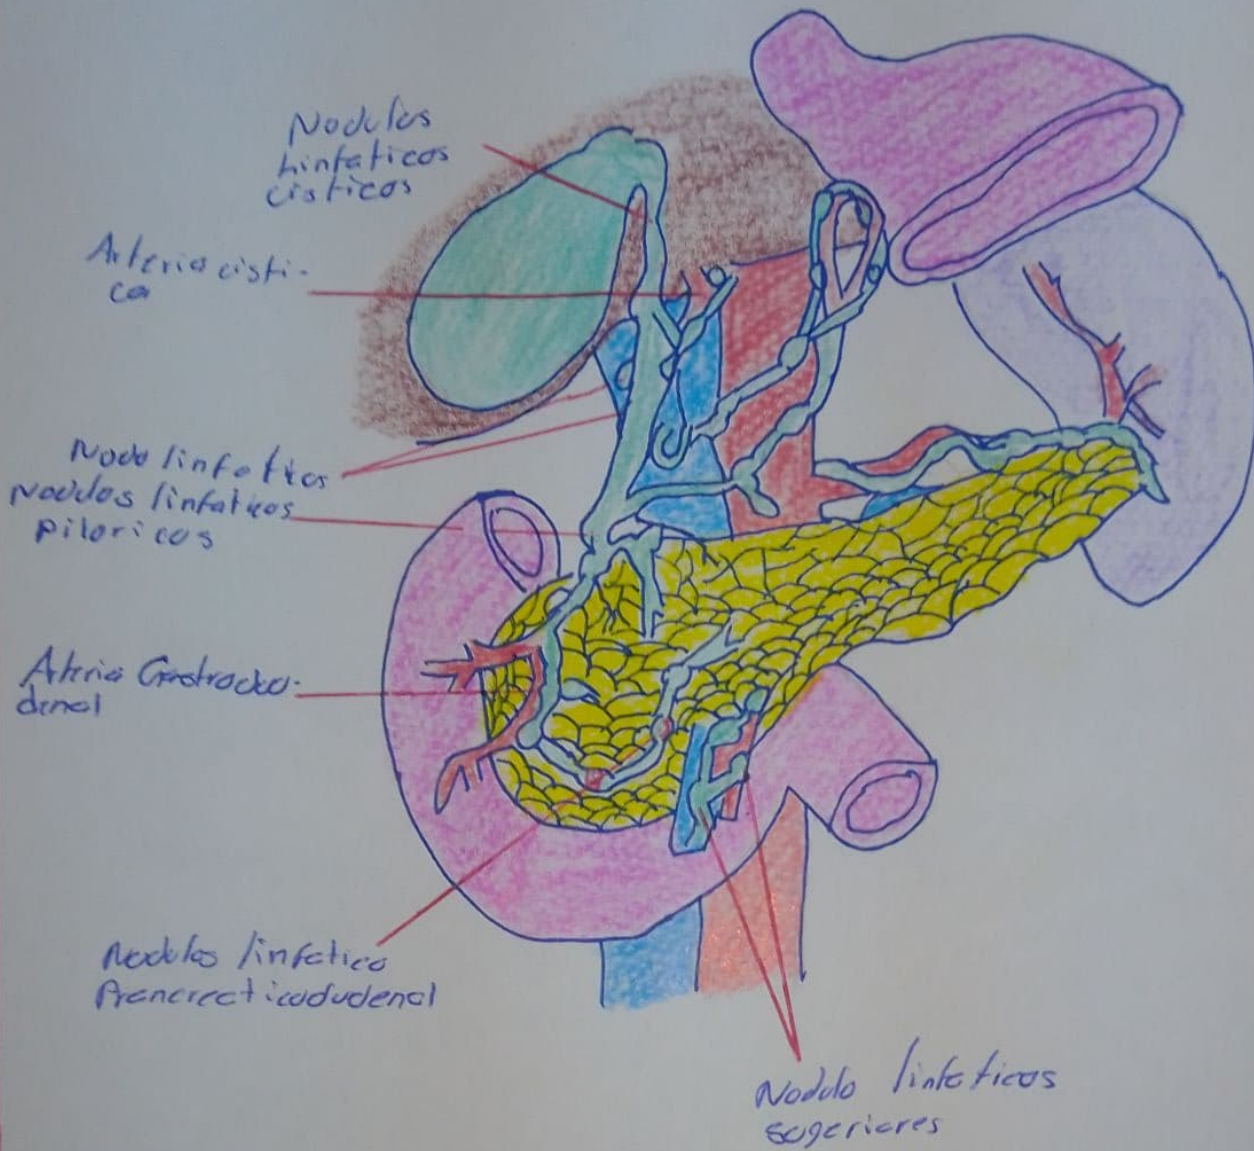 Nodulos
linfaticos
cisticos
Arteria cisti-
ca
Nodo linfaticos
Nodulos linfaticos
Piloricos
Arteria Gastrodo-
denal
Nodulos linfatico
Prancreaticodudenal
Nodulo linfaticos
sugeriores